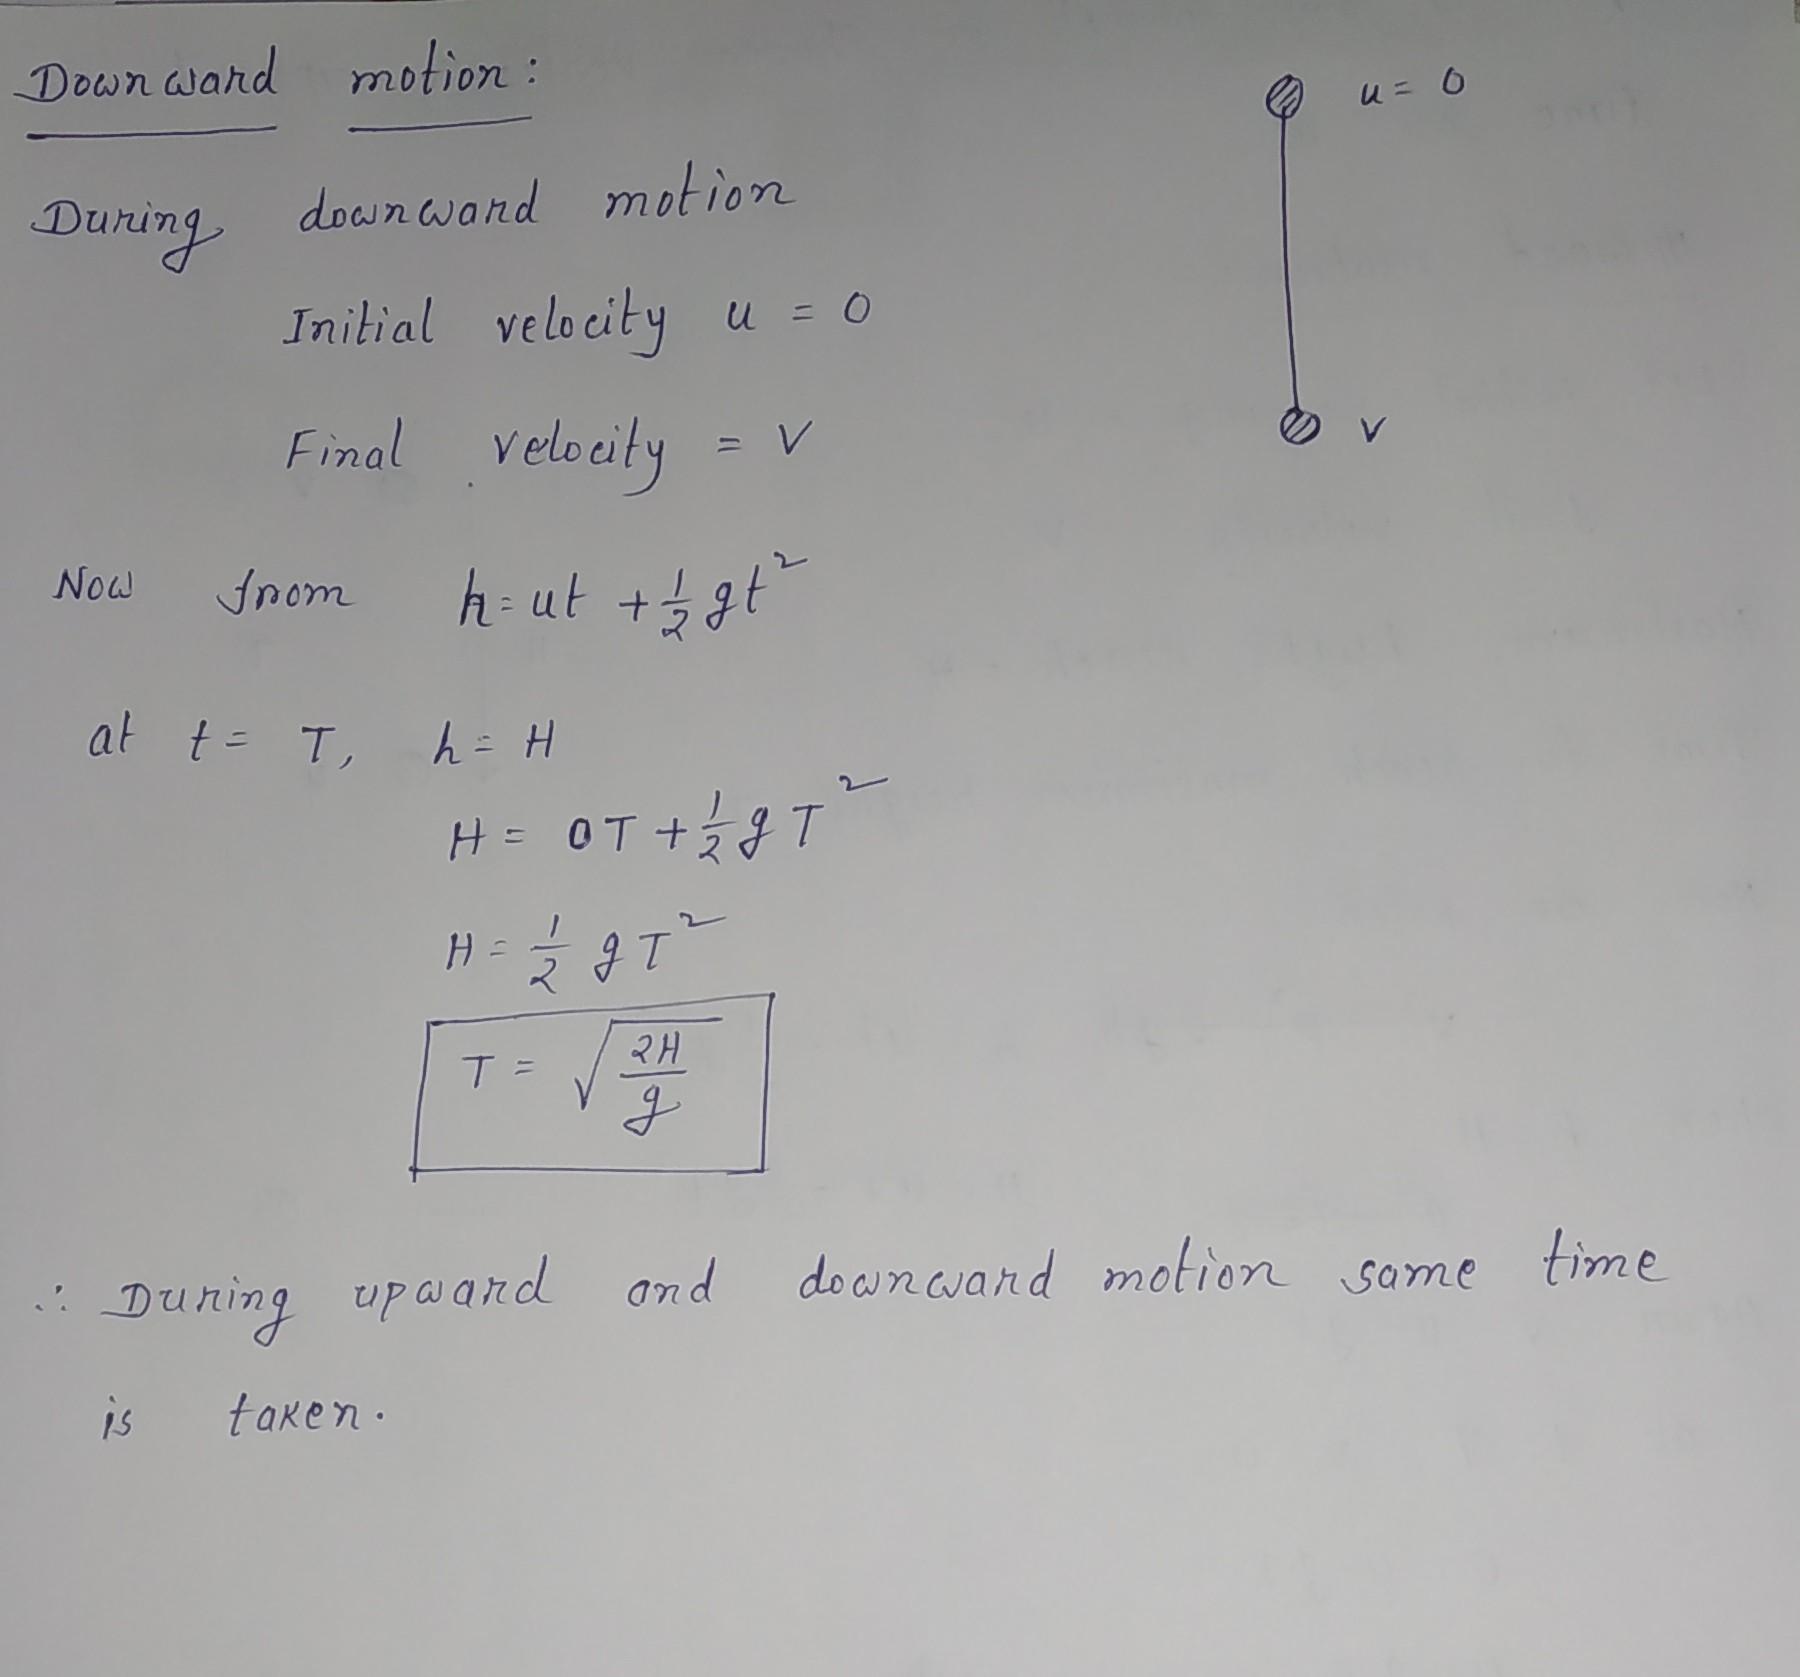 Downward motion:
u = 0
During downward motion
Initial velocity u = 0
Final velocity = v
v
Now from h = ut + 1/2 gt²
at t = T, h = H
H = 0T + 1/2 g T²
H = 1/2 g T²
T = √(2H/g)
∴ During upward and downward motion same time
is taken.